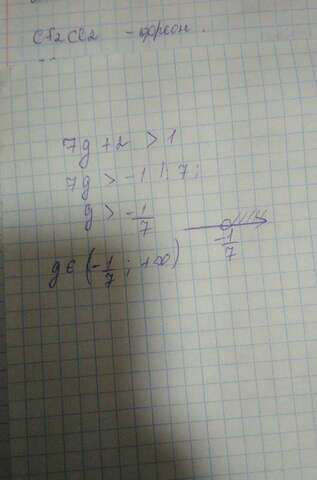 CF2Cl2 - фреон.
7y + 2 > 1
7y > -1 |:7;
y > -1/7
-1/7
y ∈ (-1/7; +∞)